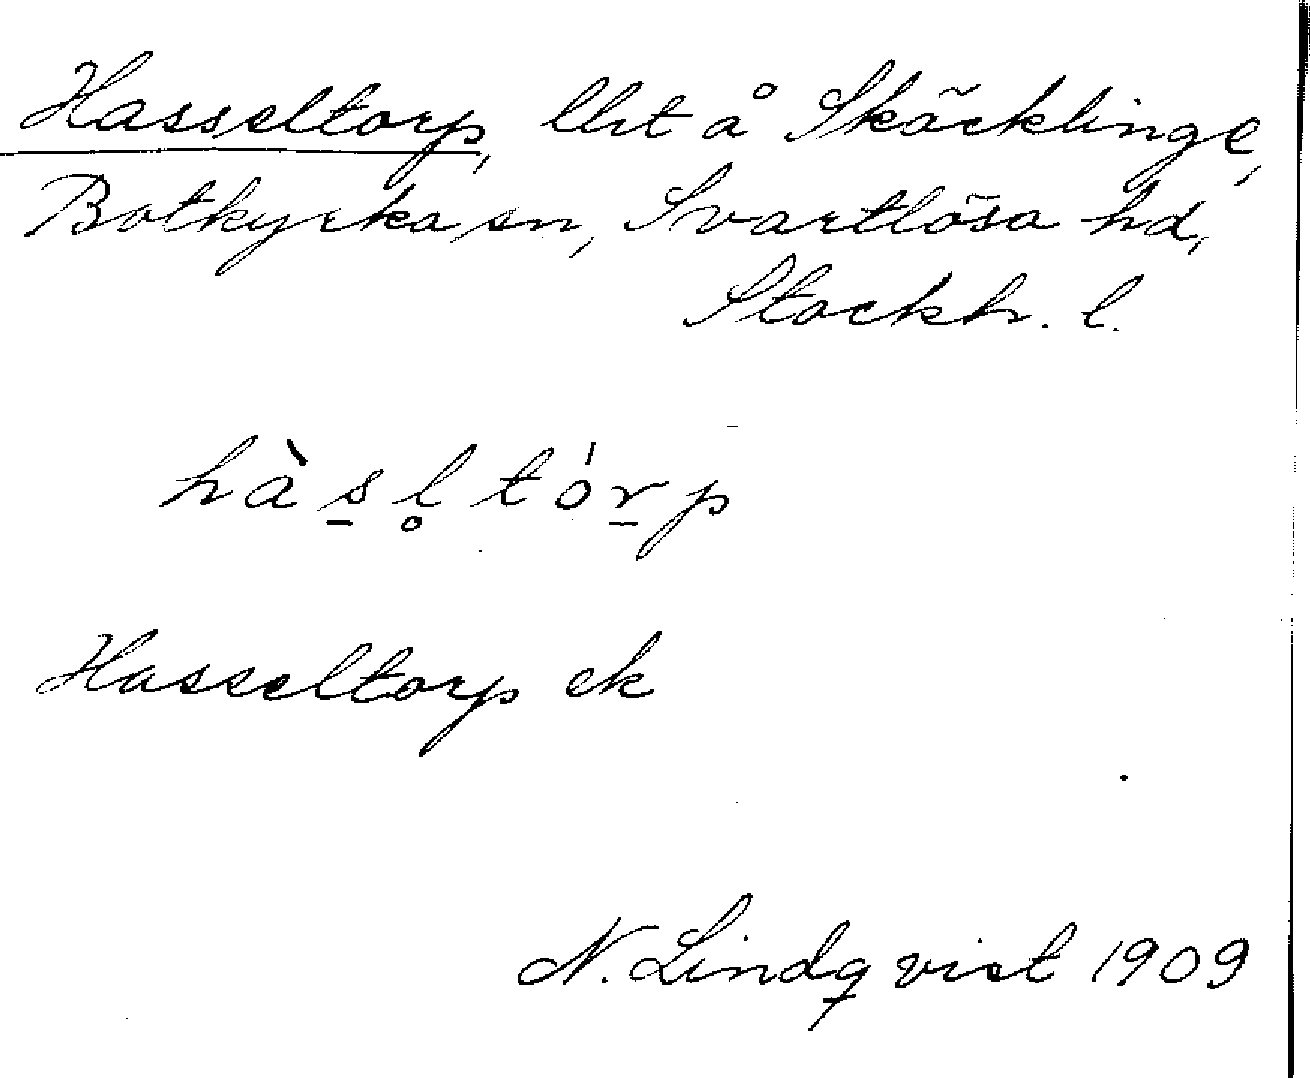 Hasseltorp, lht å Skäcklinge,
Botkyrka sn, Svartlösa hd,
Stockh. l.
hàs̲l̥tórp̲
Hasseltorp ek
N. Lindqvist 1909